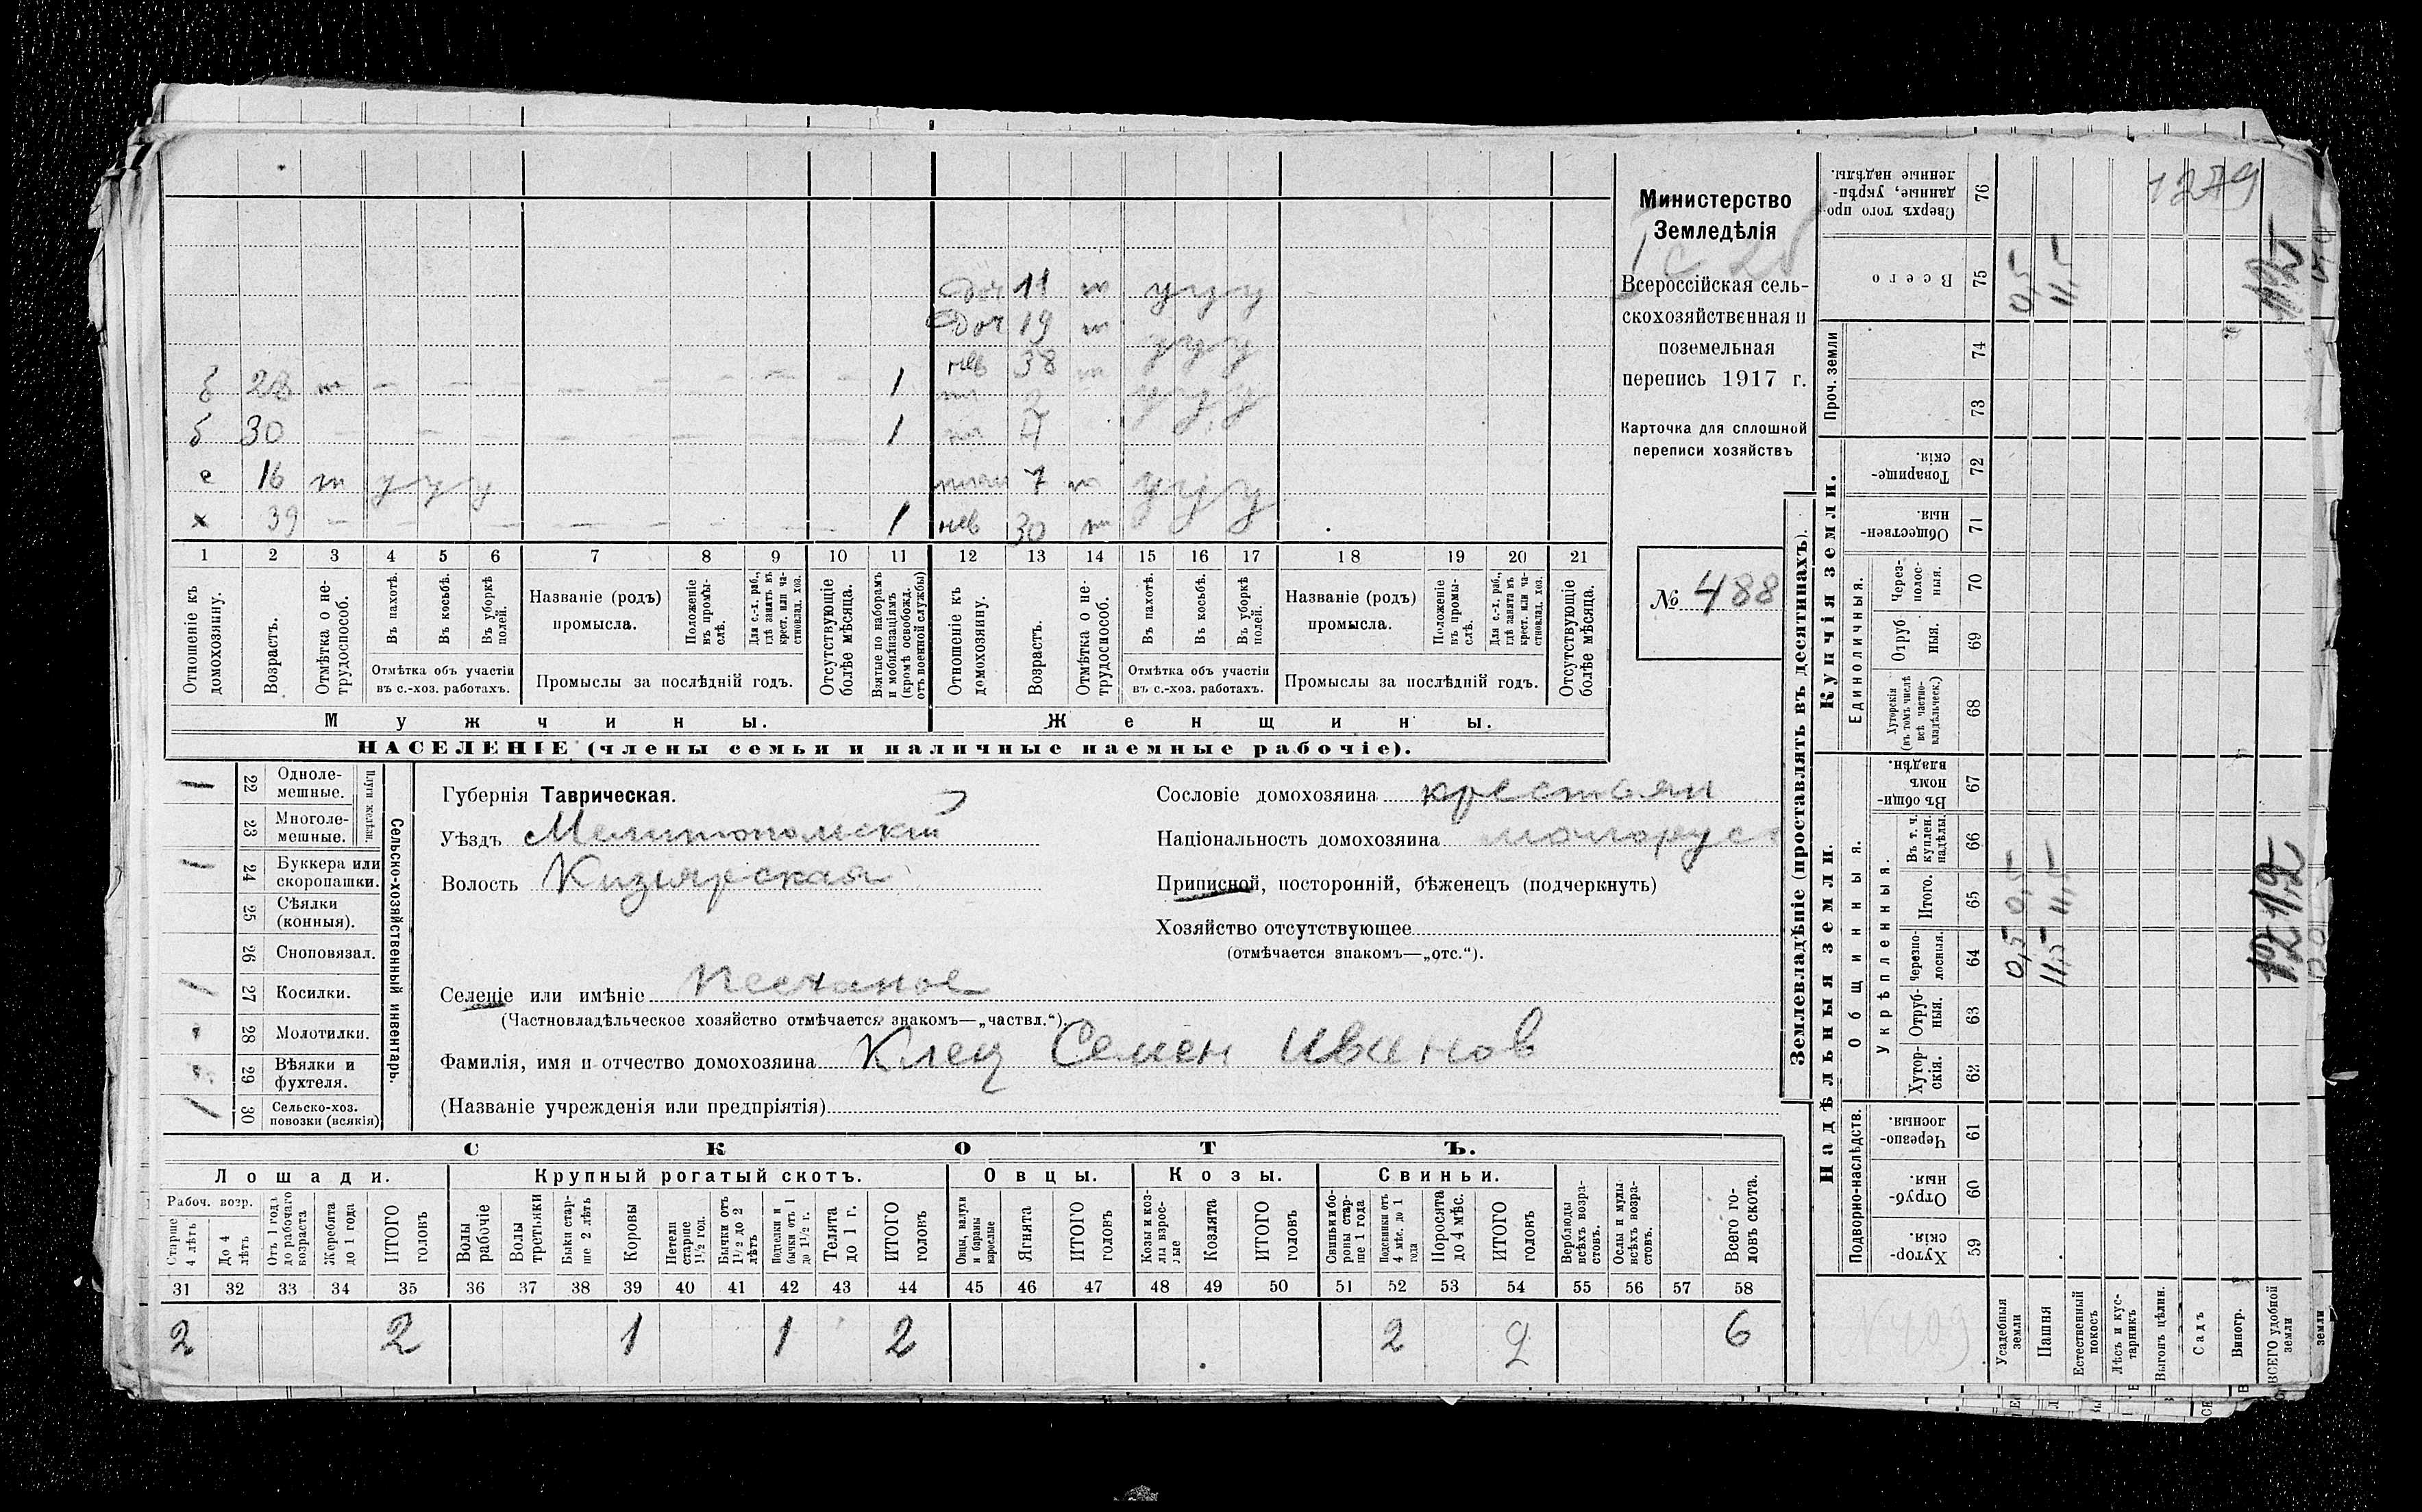 1279
Министерство
Земледѣлія
Всероссійская сель-
скохозяйственная и
поземельная
перепись 1917 г.
Карточка для сплошной
переписи хозяйствъ
№ 488
доч 11 т у у у
доч 19 т у у у
нев 38 т у у у
б 28 т — — — — — — — 1
б 30 — — — — — — — 1
с 16 т у у у 7 т у у у
х 39 — — — — — — — 1 нев 30 т
1 2 3 4 5 6 7 8 9 10 11 12 13 14 15 16 17 18 19 20 21
Отношеніе къ домохозяину.
Возрастъ.
Отмѣтка о не-трудоспособ.
Въ пахотѣ.
Въ косьбѣ.
Въ уборкѣ полей.
Отмѣтка объ участіи
въ с.-хоз. работахъ.
Названіе (родъ)
промысла.
Положеніе въ промы-слѣ.
Для с.-х. раб., гдѣ занятъ въ крест. или ча-стновлад. хоз.
Промыслы за послѣдній годъ.
Отсутствующіе болѣе мѣсяца.
Взятые по наборамъ и мобилизаціямъ (кромѣ освобожд. отъ военной службы)
Отношеніе къ домохозяину.
Возрастъ.
Отмѣтка о не-трудоспособ.
Въ пахотѣ.
Въ косьбѣ.
Въ уборкѣ полей.
Отмѣтка объ участіи
въ с.-хоз. работахъ.
Названіе (родъ)
промысла.
Положеніе въ промы-слѣ.
Для с.-х. раб., гдѣ занята въ крест. или ча-стновлад. хоз.
Промыслы за послѣдній годъ.
Отсутствующіе болѣе мѣсяца.
Мужчины. Женщины.
НАСЕЛЕНІЕ (члены семьи и наличные наемные рабочіе).
Сельско-хозяйственный инвентарь.
Плуги желѣзн.
1 22 Одноле-мешные.
23 Многоле-мешные.
1 24 Буккера или скоропашки.
25 Сѣялки (конныя).
26 Сноповязал.
1 27 Косилки.
28 Молотилки.
29 Вѣялки и фухтеля.
1 30 Сельско-хоз. повозки (всякія)
Губернія Таврическая.
Уѣздъ Мелитопольскій
Волость Кизіярская
Сословіе домохозяина крестьян
Національность домохозяина малорус
Приписной, посторонній, бѣженецъ (подчеркнуть)
Хозяйство отсутствующее
(отмѣчается знакомъ—„отс.“).
Селеніе или имѣніе Песчаное
(Частновладѣльческое хозяйство отмѣчается знакомъ—„частвл.“)
Фамилія, имя и отчество домохозяина Клец Семен Иванов
(Названіе учрежденія или предпріятія)
СКОТЪ.
Лошади. Крупный рогатый скотъ. Овцы. Козы. Свиньи.
Рабоч. возр.
Старше 4 лѣтъ
До 4 лѣтъ
Отъ 1 года до рабочаго возраста
Жеребята до 1 года
ИТОГО головъ
Волы рабочіе
Волы третьяки
Быки стар-ше 2 лѣтъ
Коровы
Нетели старше 1½ год.
Бычки отъ 1½ до 2 лѣтъ
Подтелки и бычки отъ 1 до 1½ г.
Телята до 1 г.
ИТОГО головъ
Овцы, валухи и бараны взрослые
Ягнята
ИТОГО головъ
Козы и коз-лы взрос-лые
Козлята
ИТОГО головъ
Свиньи и бо-ровы стар-ше 1 года
Подсвинки отъ 4 мѣс. до 1 года
Поросята до 4 мѣс.
ИТОГО головъ
Верблюды всѣхъ возра-стовъ.
Ослы и мулы всѣхъ возра-стовъ.
Всего го-ловъ скота.
31 32 33 34 35 36 37 38 39 40 41 42 43 44 45 46 47 48 49 50 51 52 53 54 55 56 57 58
2 2 1 1 2 2 2 6
Землевладѣніе (проставлять въ десятинахъ).
Купчія земли.
Надѣльныя земли.
Проч. земли
Единоличныя.
Общинныя.
Укрѣпленныя.
Подворно-наслѣдств.
76 Сверхъ того про-данные, укрѣп-ленные надѣлы.
75 Всего 0,5 11,5
74
73
72 Товарище-скія.
71 Обществен-ныя.
70 Через-полос-ныя.
69 Отруб-ныя.
68 Хуторскія (въ томъ числѣ всѣ частно-владѣльческ.)
67 Въ общи-номъ владѣн.
66 Въ т. ч. куплен. надѣлы.
65 Итого. 0,5 11,5
64 Черезпо-лосныя. 0,5 11,5
63 Отруб-ныя.
62 Хутор-скія.
61 Черезпо-лосныя
60 Отруб-ныя.
59 Хутор-скія.
Усадебныя земли
Пашня
Естественный покосъ
Лѣсъ и кус-тарникъ
Выгонъ цѣлин.
Садъ
Виногр.
ВСЕГО удобной земли